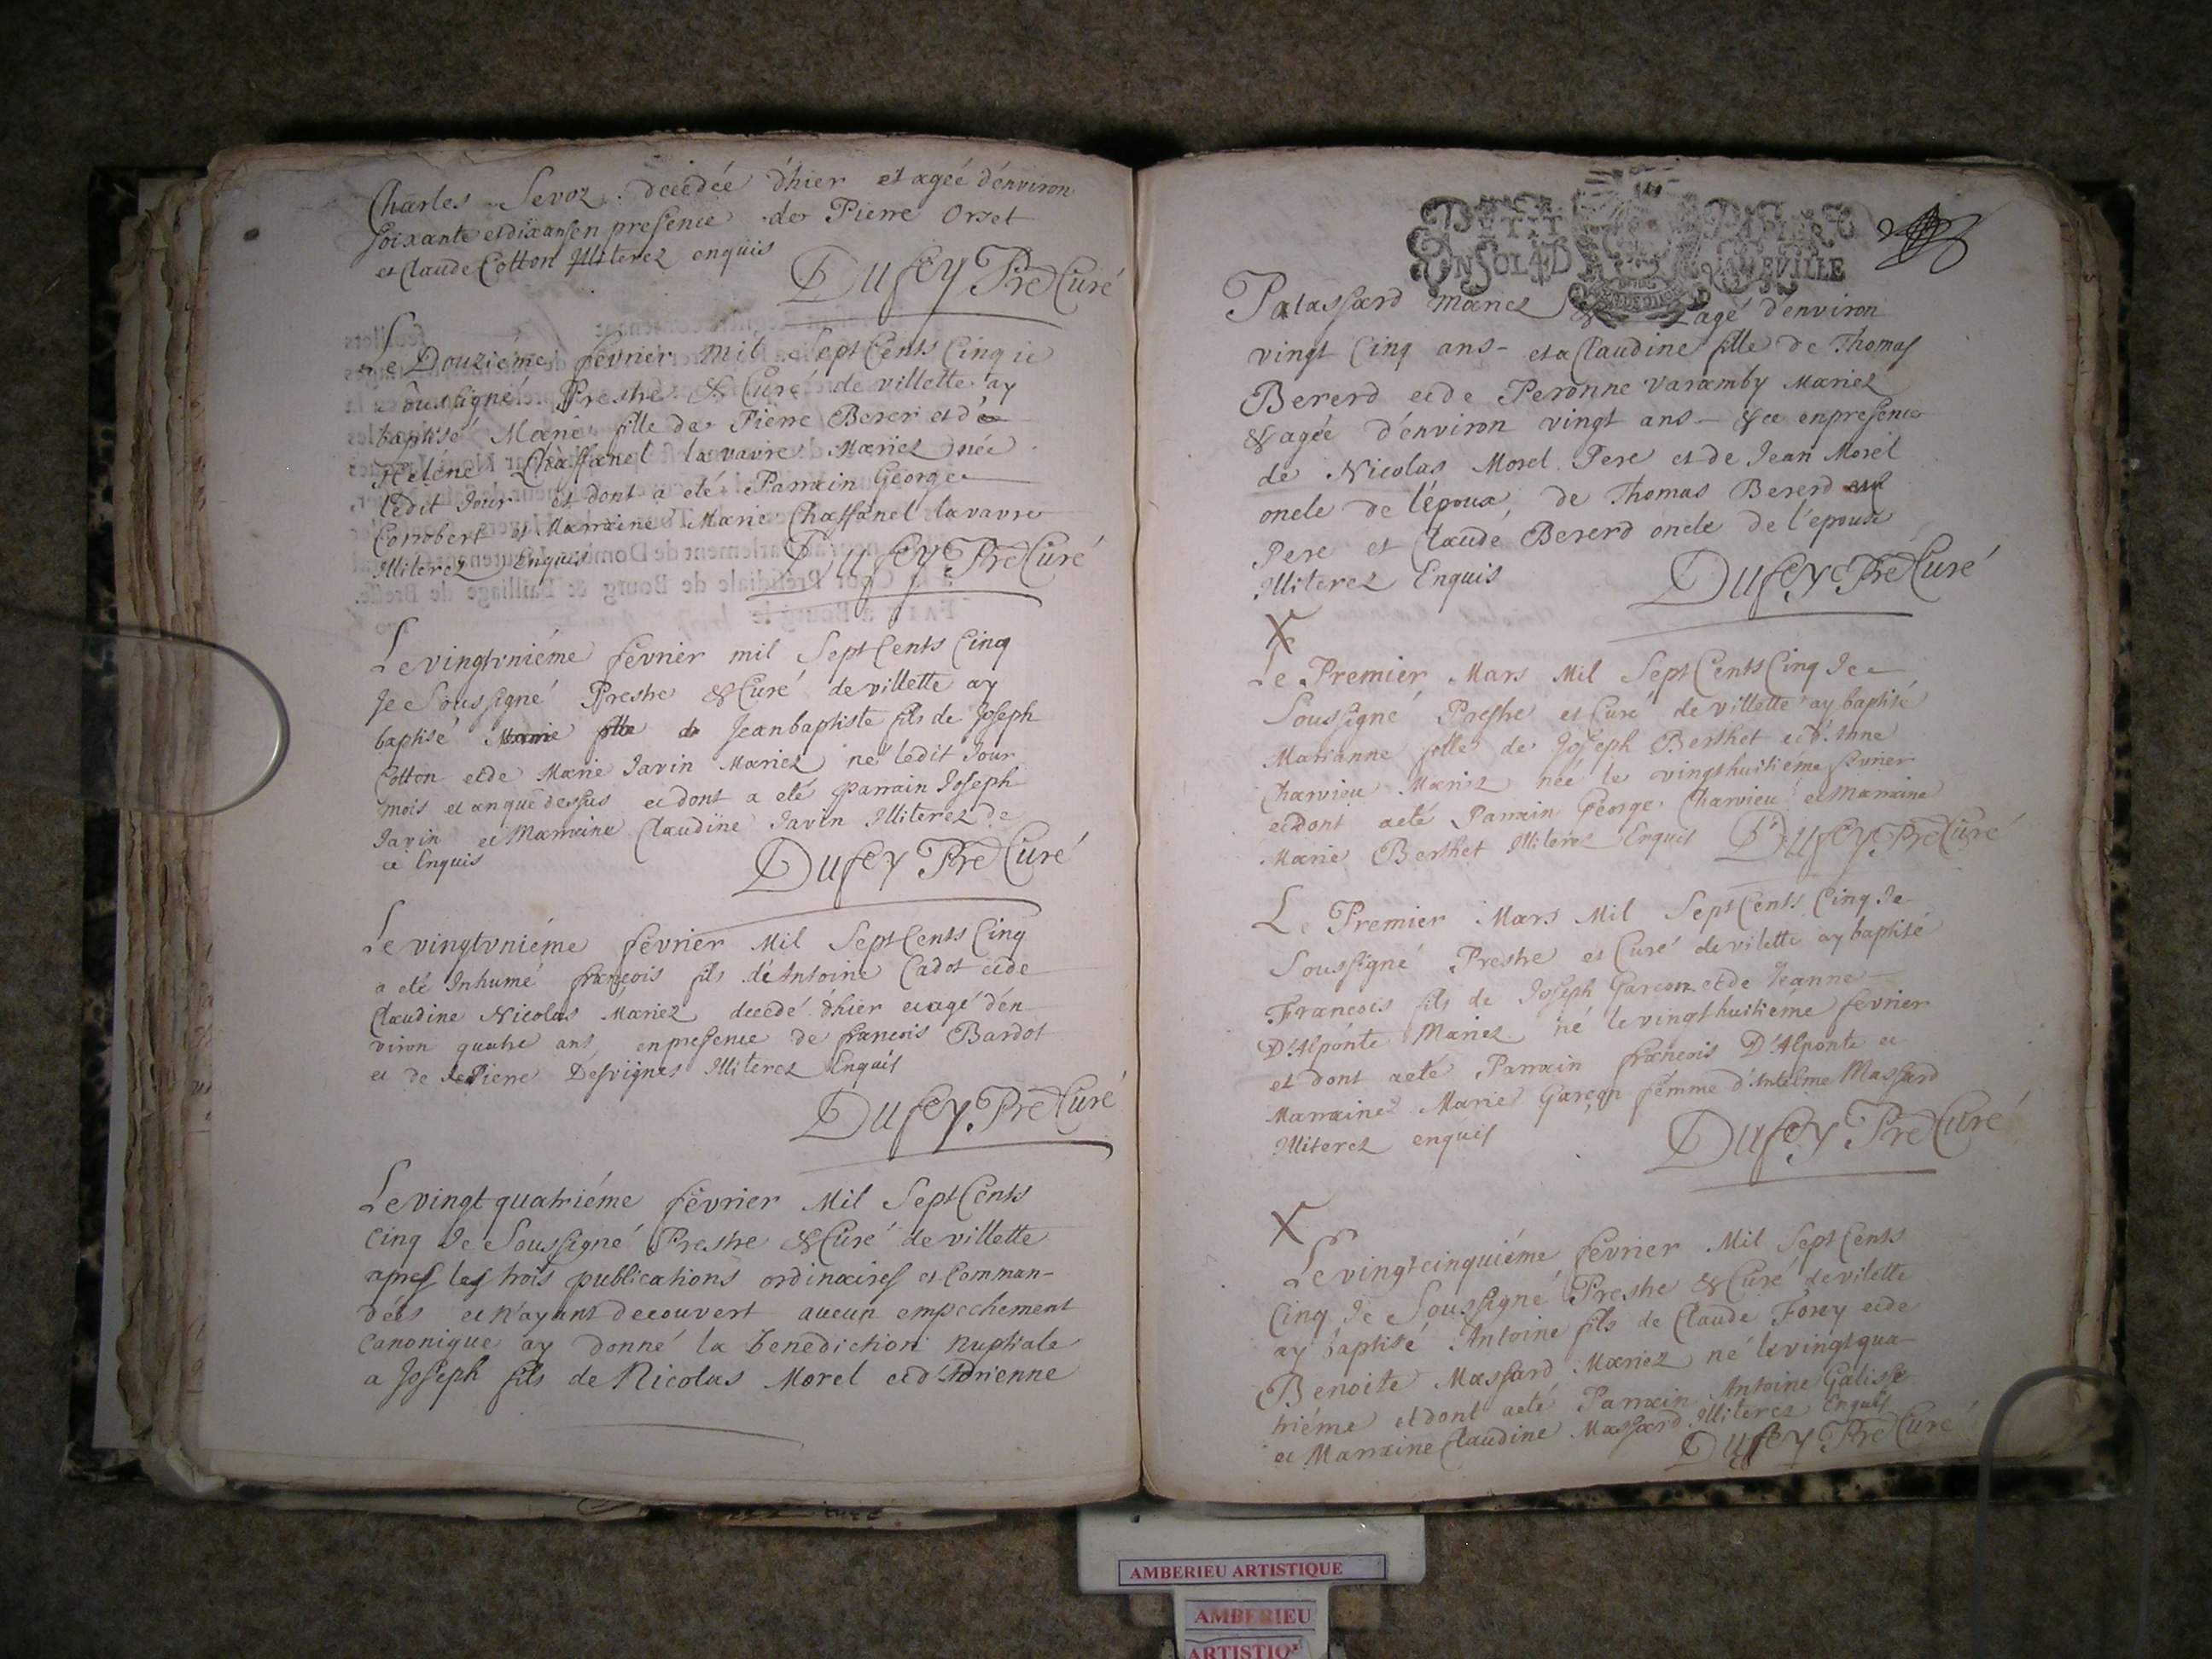 Charles Sevoz decedée d'hier et agée d'environ
soixante et dix ans en presence de Pierre Orset
et Claude Cotton Illiterez enquis
Dufey Pre Curé
Le Douziéme fevrier mil Sept Cents Cinq ie
soussigné Prestre & Curé de villette ay
baptisé Marie fille de Pierre Berer et de
Helene Chassanel lavavre Mariez née
ledit Jour et dont a eté Parrain George
Conrobert et Marraine Marie Chassanel lavavre
Illiterez Enquis
Dufey Pre Curé
Le vingtvniéme fevrier mil Sept Cents Cinq
Je Soussigné Prestre & Curé de villette ay
baptisé Marie fille de Jean baptiste fils de Joseph
Cotton et de Marie Javin Mariez né ledit Jour
mois et an que dessus et dont a eté parrain Joseph
Javin et Marraine Claudine Javin Illiterez de
ce Enquis
Dufey Pre Curé
Le vingtvniéme fevrier Mil Sept Cents Cinq
a eté Inhumé francois fils de Antoine Cadot et de
Claudine Nicolas Mariez decedé d'hier et agé d'en
viron quatre ans, en presence de francois Bardot
et de Pierre Desvignes Illiterez Enquis
Dufey Pre Curé
Le vingt quatriéme fevrier Mil Sept Cents
Cinq Je Soussigné Prestre & Curé de villette
apres les trois publications ordinaires et Comman-
dées et n'ayant decouvert aucun empechement
Canonique ay donné la benediction Nuptiale
a Joseph fils de Nicolas Morel et d'Adrienne
PETIT PAPIER
UN SOL 4 D LA FEVILLE
Palassard Mariez & agé d'environ
vingt Cinq ans - et a Claudine fille de Thomas
Bererd et de Peronne varamby Mariez
& agée d'environ vingt ans - & ce en presence
de Nicolas Morel Pere et de Jean Morel
oncle de l'epoux, de Thomas Bererd
Pere et Claude Bererd oncle de l'epouse
Illiterez Enquis
Dufey Pre Curé
X
Le Premier Mars Mil Sept Cents Cinq Je
Soussigné Prestre et Curé de villette ay baptisé
Marianne fille de Joseph Berthet et d'Anne
Charvieu Mariez née le vingthuitiéme fevrier
et dont a eté Parrain George Charvieu et Marraine
Marie Berthet Illiterez Enquis Dufey Pre Curé
Le Premier Mars Mil Sept Cents Cinq Je
Soussigné Prestre et Curé de vilette ay baptisé
Francois fils de Joseph Garcon et de Jeanne
D'Alponte Mariez né le vingthuitiéme fevrier
et dont a eté Parrain francois D'Alponte et
Marraine Marie Garçon femme d'Antelme Massard
Illiterez enquis
Dufey Pre Curé
X
Le vingtcinquiéme fevrier Mil Sept Cents
Cinq Je Soussigné Prestre & Curé de vilette
ay baptisé Antoine fils de Claude Forey et de
Benoite Massard Mariez né le vingtqua-
triéme et dont a eté Parrain Antoine Galisse
et Marraine Claudine Massard Illiterez Enquis
Dufey Pre Curé
AMBERIEU ARTISTIQUE
AMBERIEU
ARTISTIQ